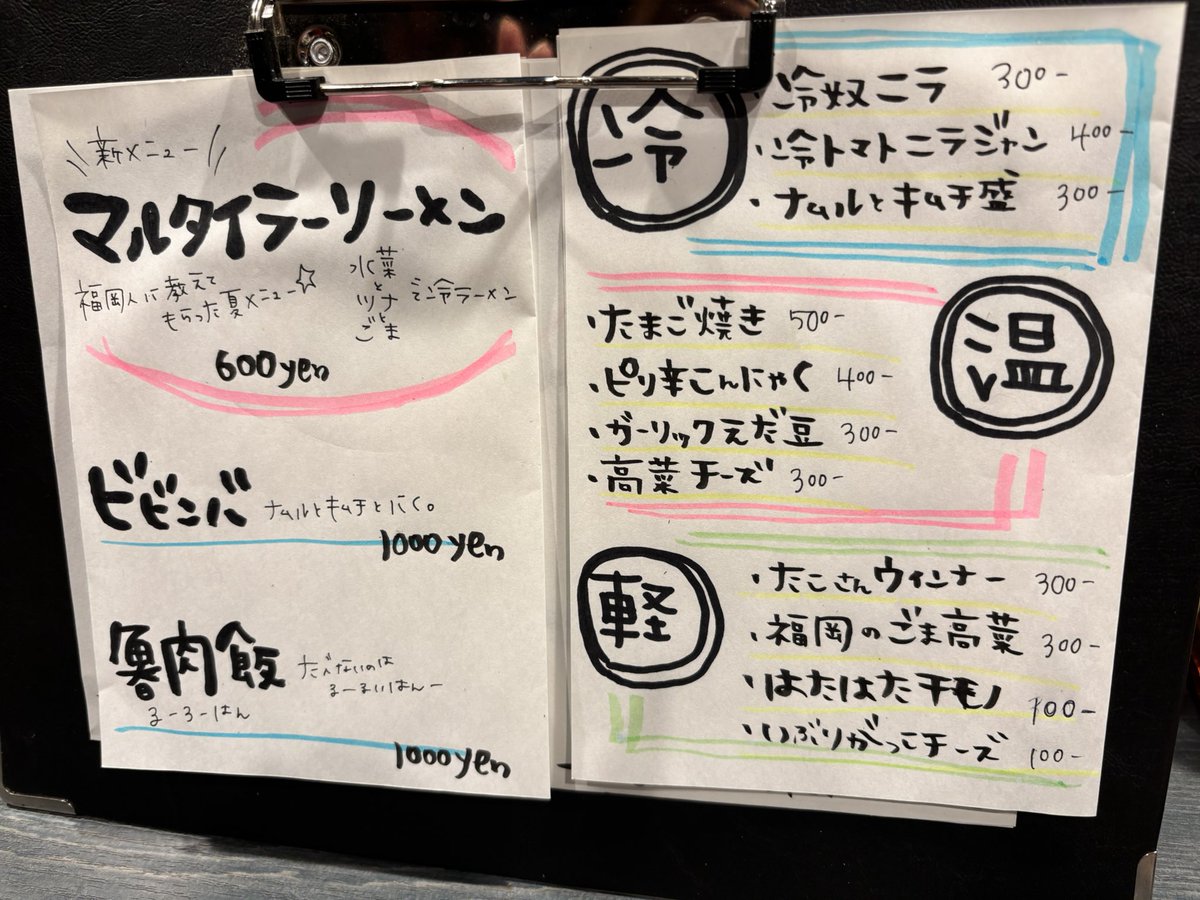 新メニュー
マルタイラーソーメン
福岡人に教えて
もらった夏メニュー☆
水菜
と
ツナ
と
ごま
で冷ラーメン
600yen
ビビンバ ナムルとキムチとにく。
1000yen
魯肉飯
るーろーはん
1000yen
冷
・冷奴ニラ 300-
・冷トマトニラジャン 400-
・ナムルとキムチ盛 300-
温
・たまご焼き 500-
・ピリ辛こんにゃく 400-
・ガーリックえだ豆 300-
・高菜チーズ 300-
軽
・たこさんウィンナー 300-
・福岡のごま高菜 300-
・はたはた干モノ 100-
・いぶりがっこチーズ 100-